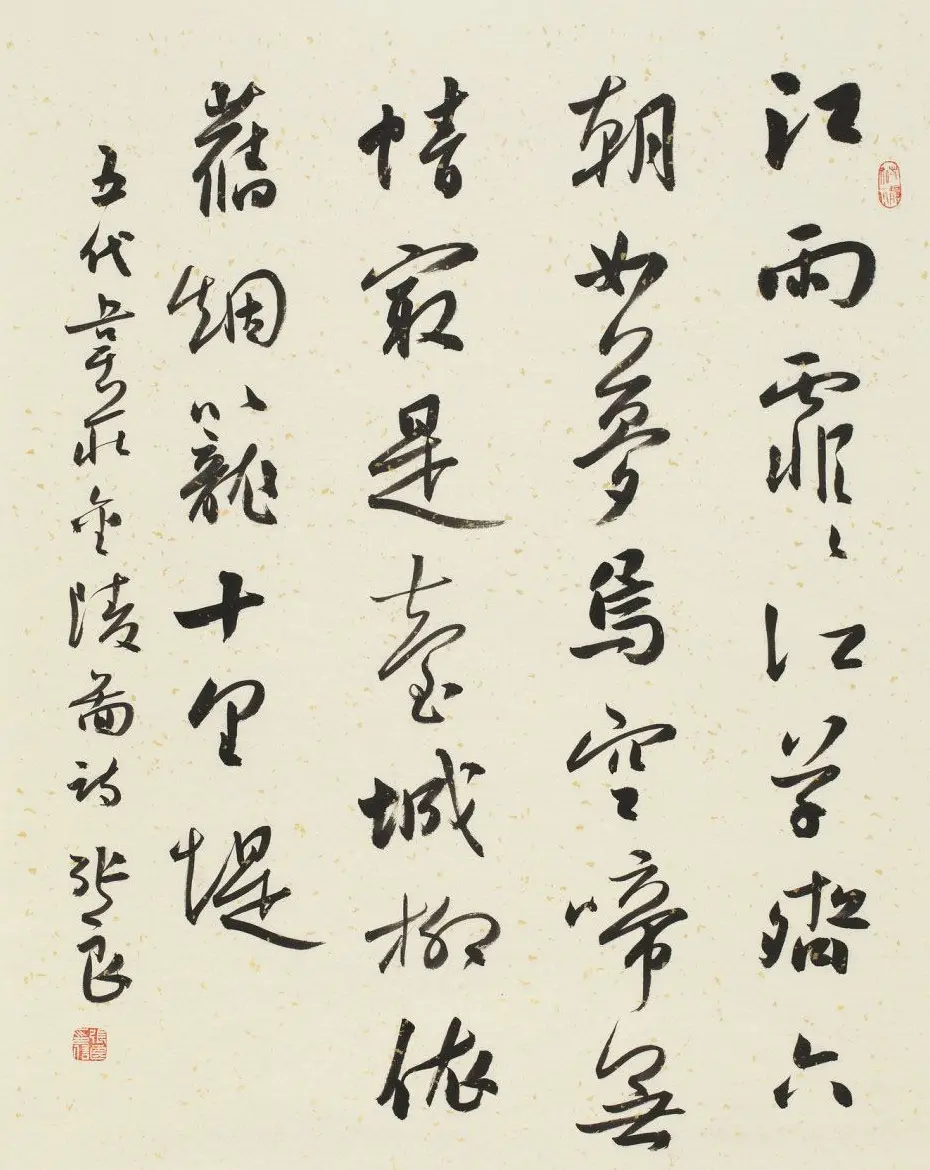 江雨霏〻江草齊六
朝如夢鳥空啼無
情最是臺城柳依
舊烟籠十里堤
五代韋莊金陵圖詩 張良